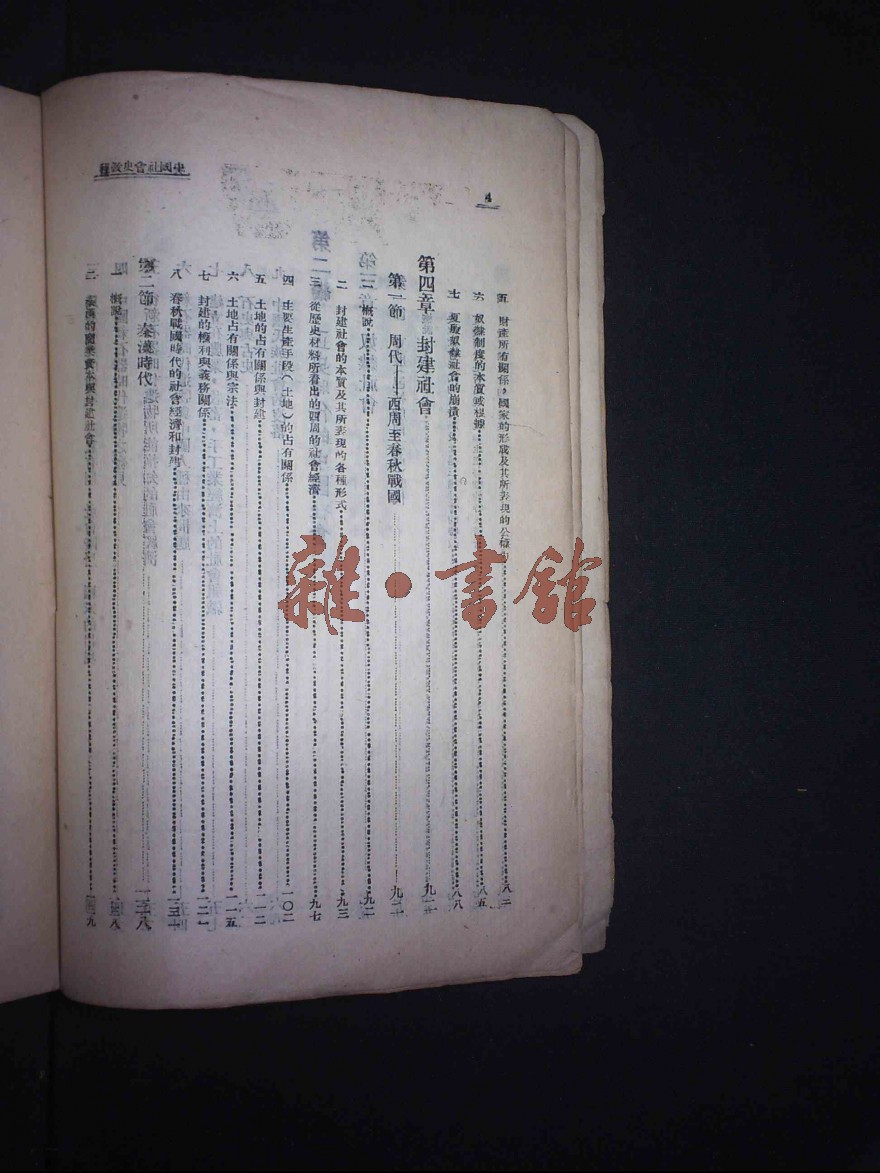 中國社會史教程
4
五 財產所有關係，國家的形成及其所表現的公權力……八二
六 奴隸制度的本質或根據……八五
七 夏殷奴隸社會的崩潰……八八
第四章 封建社會……九一
第一節 周代——西周至春秋戰國……九二
一 概說……九二
二 封建社會的本質及其所表現的各種形式……九三
三 從歷史材料所看出的西周的社會經濟……九七
四 主要生產手段(土地)的占有關係……一〇二
五 土地的占有關係與封建……一一二
六 土地占有關係與宗法……一一五
七 封建的權利與義務關係……一二一
八 春秋戰國時代的社會經濟和封建……
第二節 秦漢時代……一三八
一 概說……
二 秦漢的商業資本與封建社會……
雜·書館